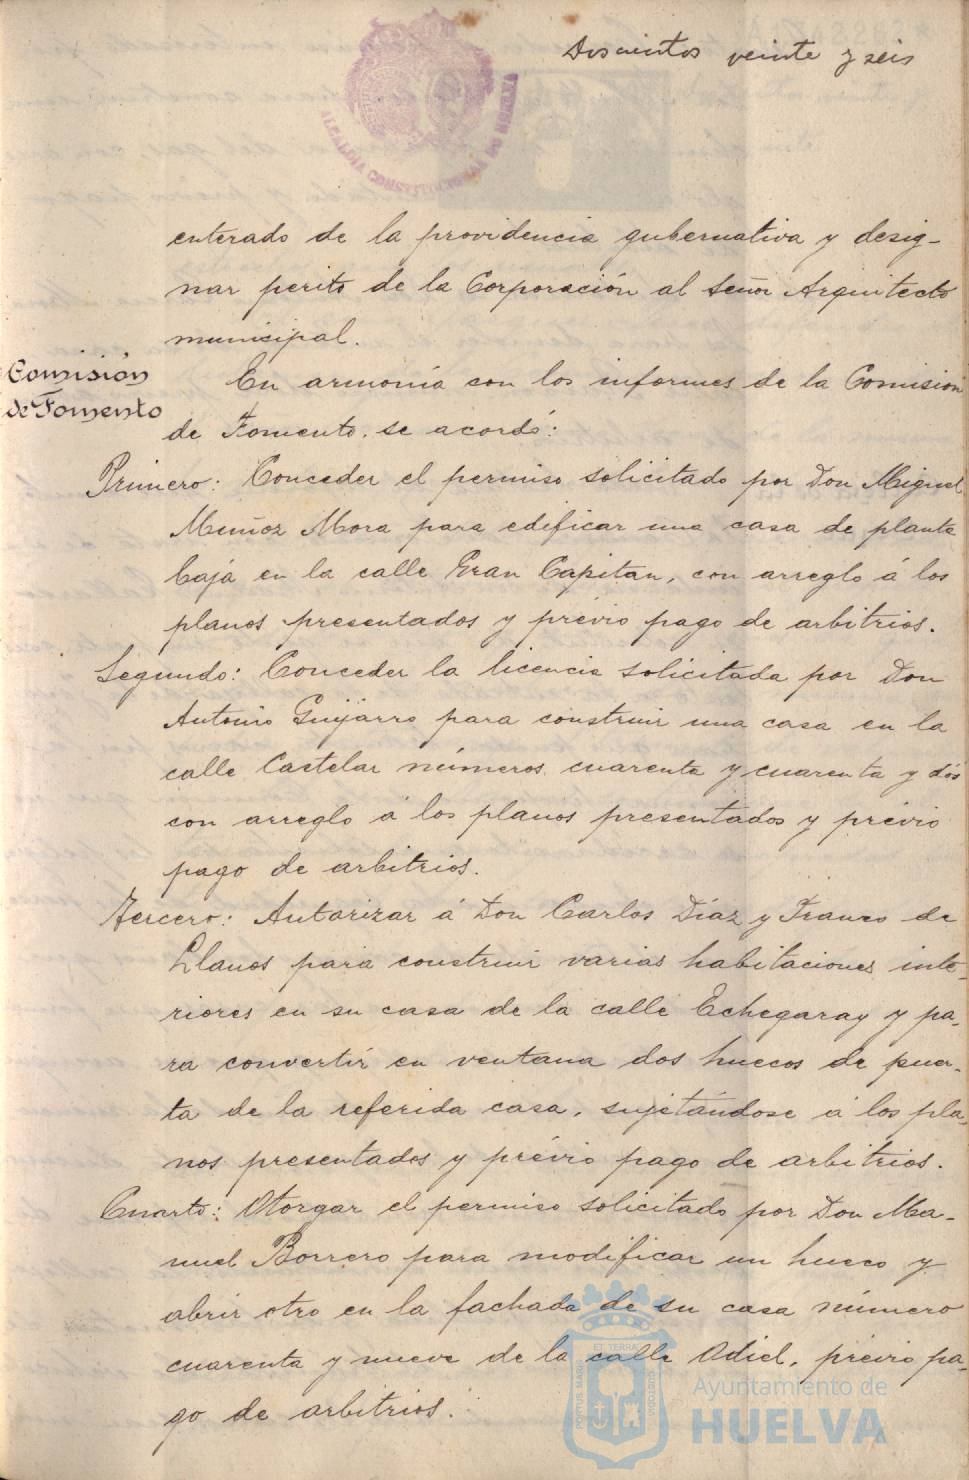 Doscientos veinte y seis
ALCALDIA CONSTITUCIONAL DE
enterado de la providencia gubernativa y desig-
nar perito de la Corporación al Señor Arquitecto
municipal.
Comisión
de Fomento
En armonía con los informes de la Comisión
de Fomento. se acordó:
Primero: Conceder el permiso solicitado por Don Miguel
Muñoz Mora para edificar una casa de planta
baja en la calle Gran Capitan, con arreglo á los
planos presentados y prévio pago de arbitrios.
Segundo: Conceder la licencia solicitada por Don
Antonio Guijarro para construir una casa en la
calle Castelar números cuarenta y cuarenta y dós
con arreglo á los planos presentados y prévio
pago de arbitrios.
Tercero: Autorizar á Don Carlos Díaz y Franco de
Llanos para construir varias habitaciones inte-
riores en su casa de la calle Echegaray y pa-
ra convertir en ventana dos huecos de puer-
ta de la referida casa, sujetándose á los pla-
nos presentados y prévio pago de arbitrios.
Cuarto: Otorgar el permiso solicitado por Don Ma-
nuel Borrero para modificar un hueco y
abrir otro en la fachada de su casa número
cuarenta y nueve de la calle Odiel, prévio pa-
go de arbitrios.
PORTUS MARIS ET TERRAE CUSTODIA
Ayuntamiento de
HUELVA